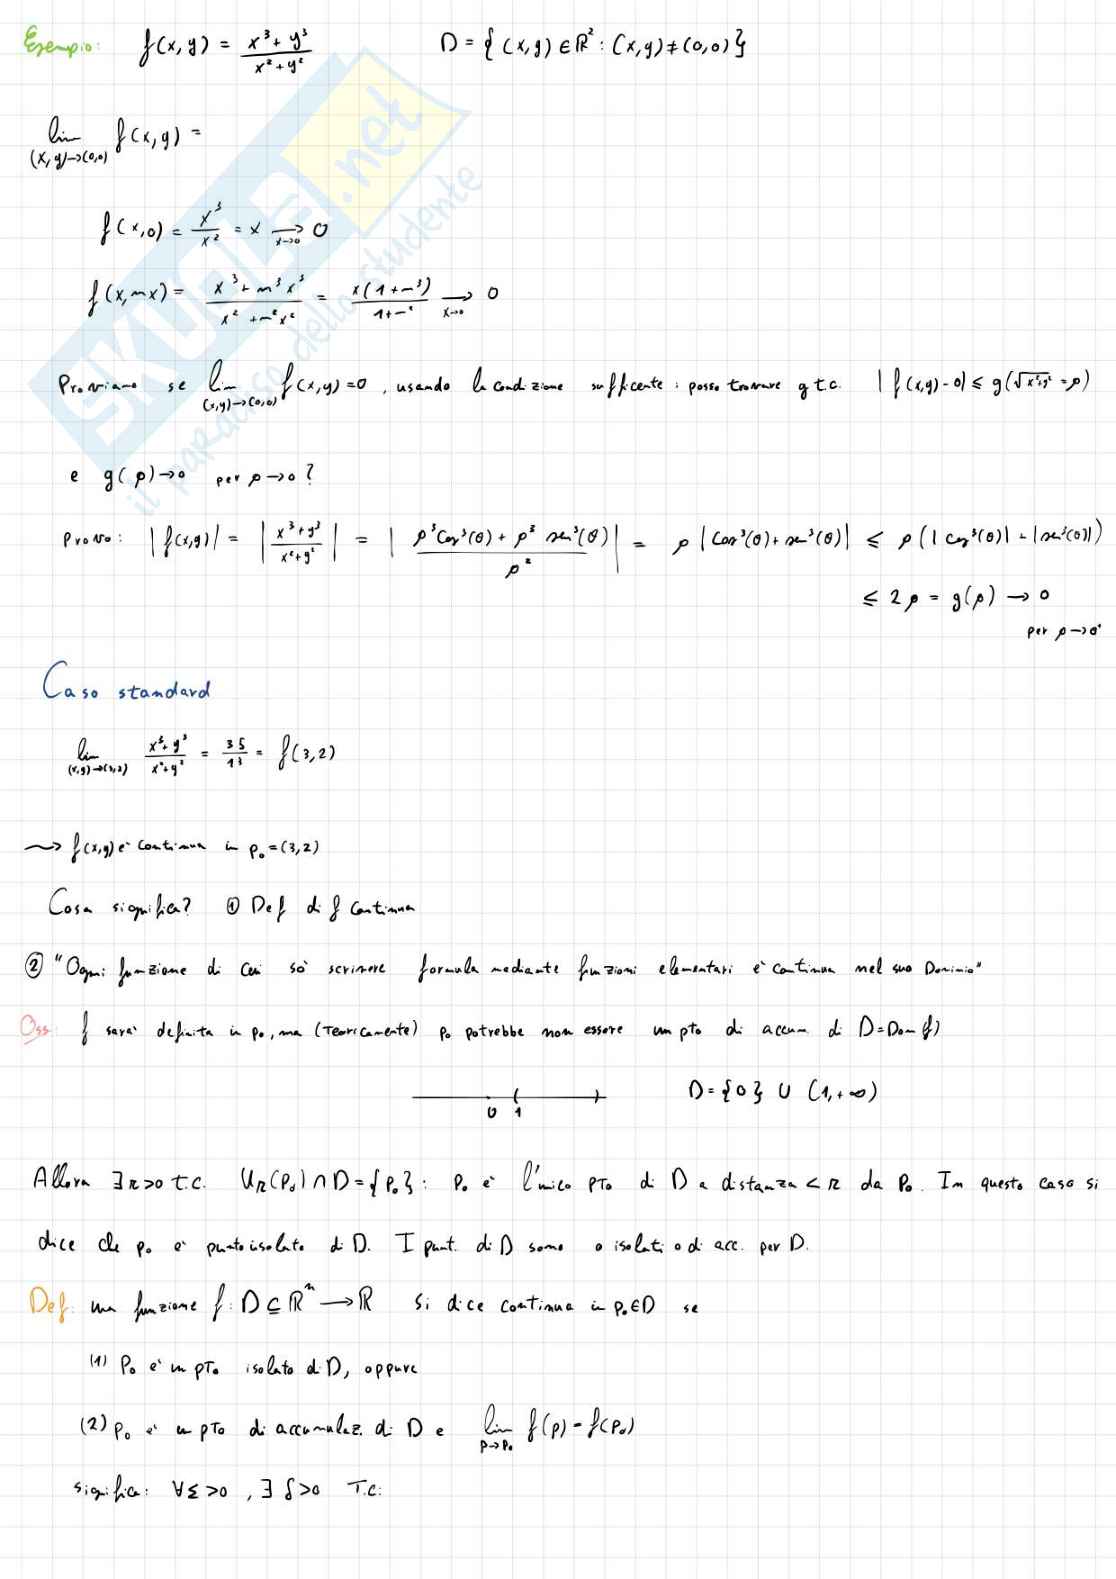 Esempio: f(x,y) = (x³+y³)/(x²+y²) D = {(x,y) ∈ ℝ² : (x,y) ≠ (0,0)}
lim_{(x,y)→(0,0)} f(x,y) =
f(x,0) = x³/x² = x →_{x→0} 0
f(x,mx) = (x³+m³x³)/(x²+m²x²) = x(1+m³)/(1+m²) →_{x→0} 0
Proviamo se lim_{(x,y)→(0,0)} f(x,y)=0, usando la condizione sufficente: posso trovare g t.c. |f(x,y)-0| ≤ g(√(x²+y²) = ρ)
e g(ρ)→0 per ρ→0?
Provo: |f(x,y)| = |(x³+y³)/(x²+y²)| = |(ρ³Cos³(θ) + ρ³ sen³(θ))/ρ²| = ρ|Cos³(θ)+sen³(θ)| ≤ ρ(|Cos³(θ)|+|sen³(θ)|)
≤ 2ρ = g(ρ) → 0
per ρ→0⁺
Caso standard
lim_{(x,y)→(3,2)} (x³+y³)/(x²+y²) = 35/13 = f(3,2)
⤳ f(x,y) e' continua in p₀=(3,2)
Cosa significa? ① Def di f continua
② "Ogni funzione di cui so scrivere formula mediante funzioni elementari e' continua nel suo Dominio"
Oss: f sara' definita in p₀, ma (Teoricamente) p₀ potrebbe non essere un pto di accum. di D=Dom f)
0 1 D={0} ∪ (1,+∞)
Allora ∃r>0 t.c. U_r(p₀)∩D={p₀}: p₀ e' l'unico pto di D a distanza < r da p₀. In questo caso si
dice che p₀ e' punto isolato di D. I punt. di D sono o isolati o di acc. per D.
Def: una funzione f: D⊆ℝⁿ→ℝ si dice continua in p₀∈D se
(1) p₀ e' un pto isolato di D, oppure
(2) p₀ e' un pto di accumulaz. di D e lim_{p→p₀} f(p)=f(p₀)
significa: ∀ε>0, ∃δ>0 T.c:
SKUOLA.net
il paradiso dello studente